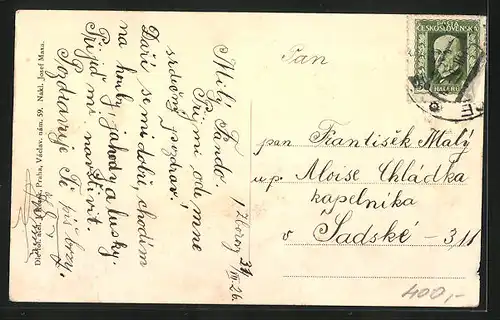 Milý Fando.
Přijmi ode mne
srdečný pozdrav.
Daří se mi dobře, chodím
na houby, jahody a lusky.
Přijď mě navštívit.
Pozdravuje Tě
brzy.
31
VII 26
Pan
pan František Malý
u p. Aloise Chládka
kapelníka
v Sadské - 311
POŠTA
ČESKOSLOVENSKÁ
HALÉŘŮ
Praha, Václav. nám. 59. Nakl. Josef
400,-